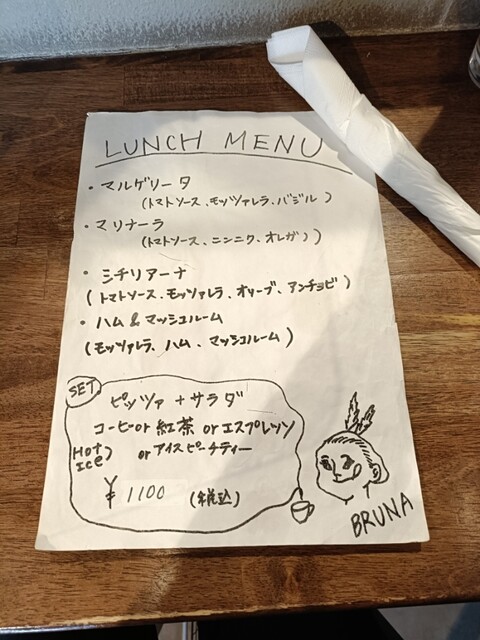 LUNCH MENU
・マルゲリータ
(トマトソース、モッツァレラ、バジル)
・マリナーラ
(トマトソース、ニンニク、オレガノ)
・シチリアーナ
(トマトソース、モッツァレラ、オリーブ、アンチョビ)
・ハム & マッシュルーム
(モッツァレラ、ハム、マッシュルーム)
SET
ピッツァ + サラダ
コーヒー or 紅茶 or エスプレッソ
Hot
Ice)
or アイスピーチティー
¥1100 (税込)
BRUNA